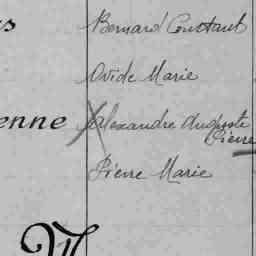 s Bernard Constant
Ovide Marie
enne Alexandre Auguste
Pierre
Pierre Marie
M